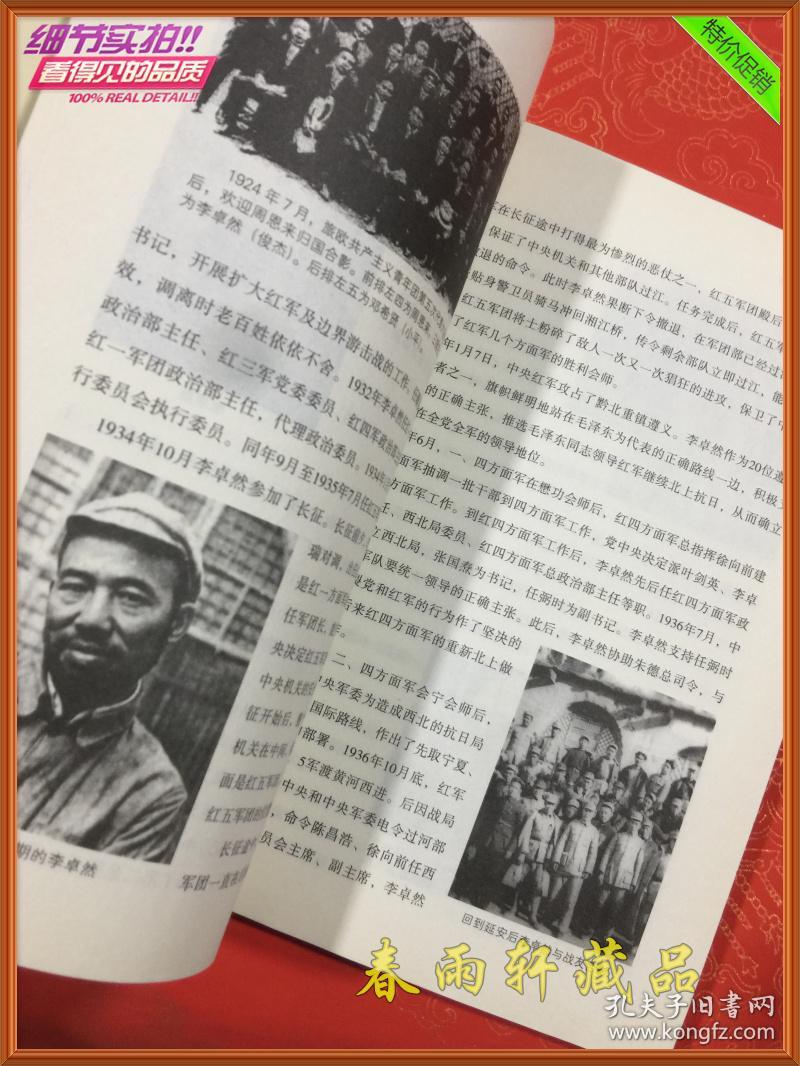 细节实拍!!
看得见的品质
100% REAL DETAIL!!
特价促销
1924年7月，旅欧共产主义青年团第五次代
后，欢迎周恩来归国合影。前排左四为周恩来
为李卓然（俊杰）。后排左五为邓希贤（小平
书记，开展扩大红军及边界游击战的工作，
效，调离时老百姓依依不舍。1932年李卓然
政治部主任、红三军党委委员、红四军政治
红一军团政治部主任，代理政治委员。1934年
行委员会执行委员。同年9月至1935年7月任红五
1934年10月李卓然参加了长征。长征前夕
瑞对调，
是红一方面军
任军团长，
央决定红五军
中央机关的
征开始后，
机关在中间，
面是红五军团
红五军团的
长征途中
军团一直在
期的李卓然
军在长征途中打得最为惨烈的恶仗之一，红五军团殿后
保证了中央机关和其他部队过江。任务完成后，红五军
撤退的命令。此时李卓然果断下令撤退，在军团部已经过
贴身警卫员骑马冲回湘江桥，传令剩余部队立即过江，能
红五军团将士粉碎了敌人一次又一次猖狂的进攻，保卫了中
了红军几个方面军的胜利会师。
年1月7日，中央红军攻占了黔北重镇遵义。李卓然作为20位
者之一，旗帜鲜明地站在毛泽东为代表的正确路线一边，积极
的正确主张，推选毛泽东同志领导红军继续北上抗日，从而确立
在全党全军的领导地位。
年6月，一、四方面军在懋功会师后，红四方面军总指挥徐向前建
面军抽调一批干部到四方面军工作，党中央决定派叶剑英、李卓
方面军工作。到红四方面军工作后，李卓然先后任红四方面军政
任、西北局委员、红四方面军总政治部主任等职。1936年7月，中
立西北局，张国焘为书记，任弼时为副书记。李卓然支持任弼时
军队要统一领导的正确主张。此后，李卓然协助朱德总司令，与
党和红军的行为作了坚决的
后来红四方面军的重新北上做
。
二、四方面军会宁会师后，
央军委为造成西北的抗日局
国际路线，作出了先取宁夏、
部署。1936年10月底，红军
5军渡黄河西进。后因战局
中央和中央军委电令过河部
，命令陈昌浩、徐向前任西
员会主席、副主席，李卓然
回到延安后李卓然与战友
春雨轩藏品
孔夫子旧书网
www.kongfz.com